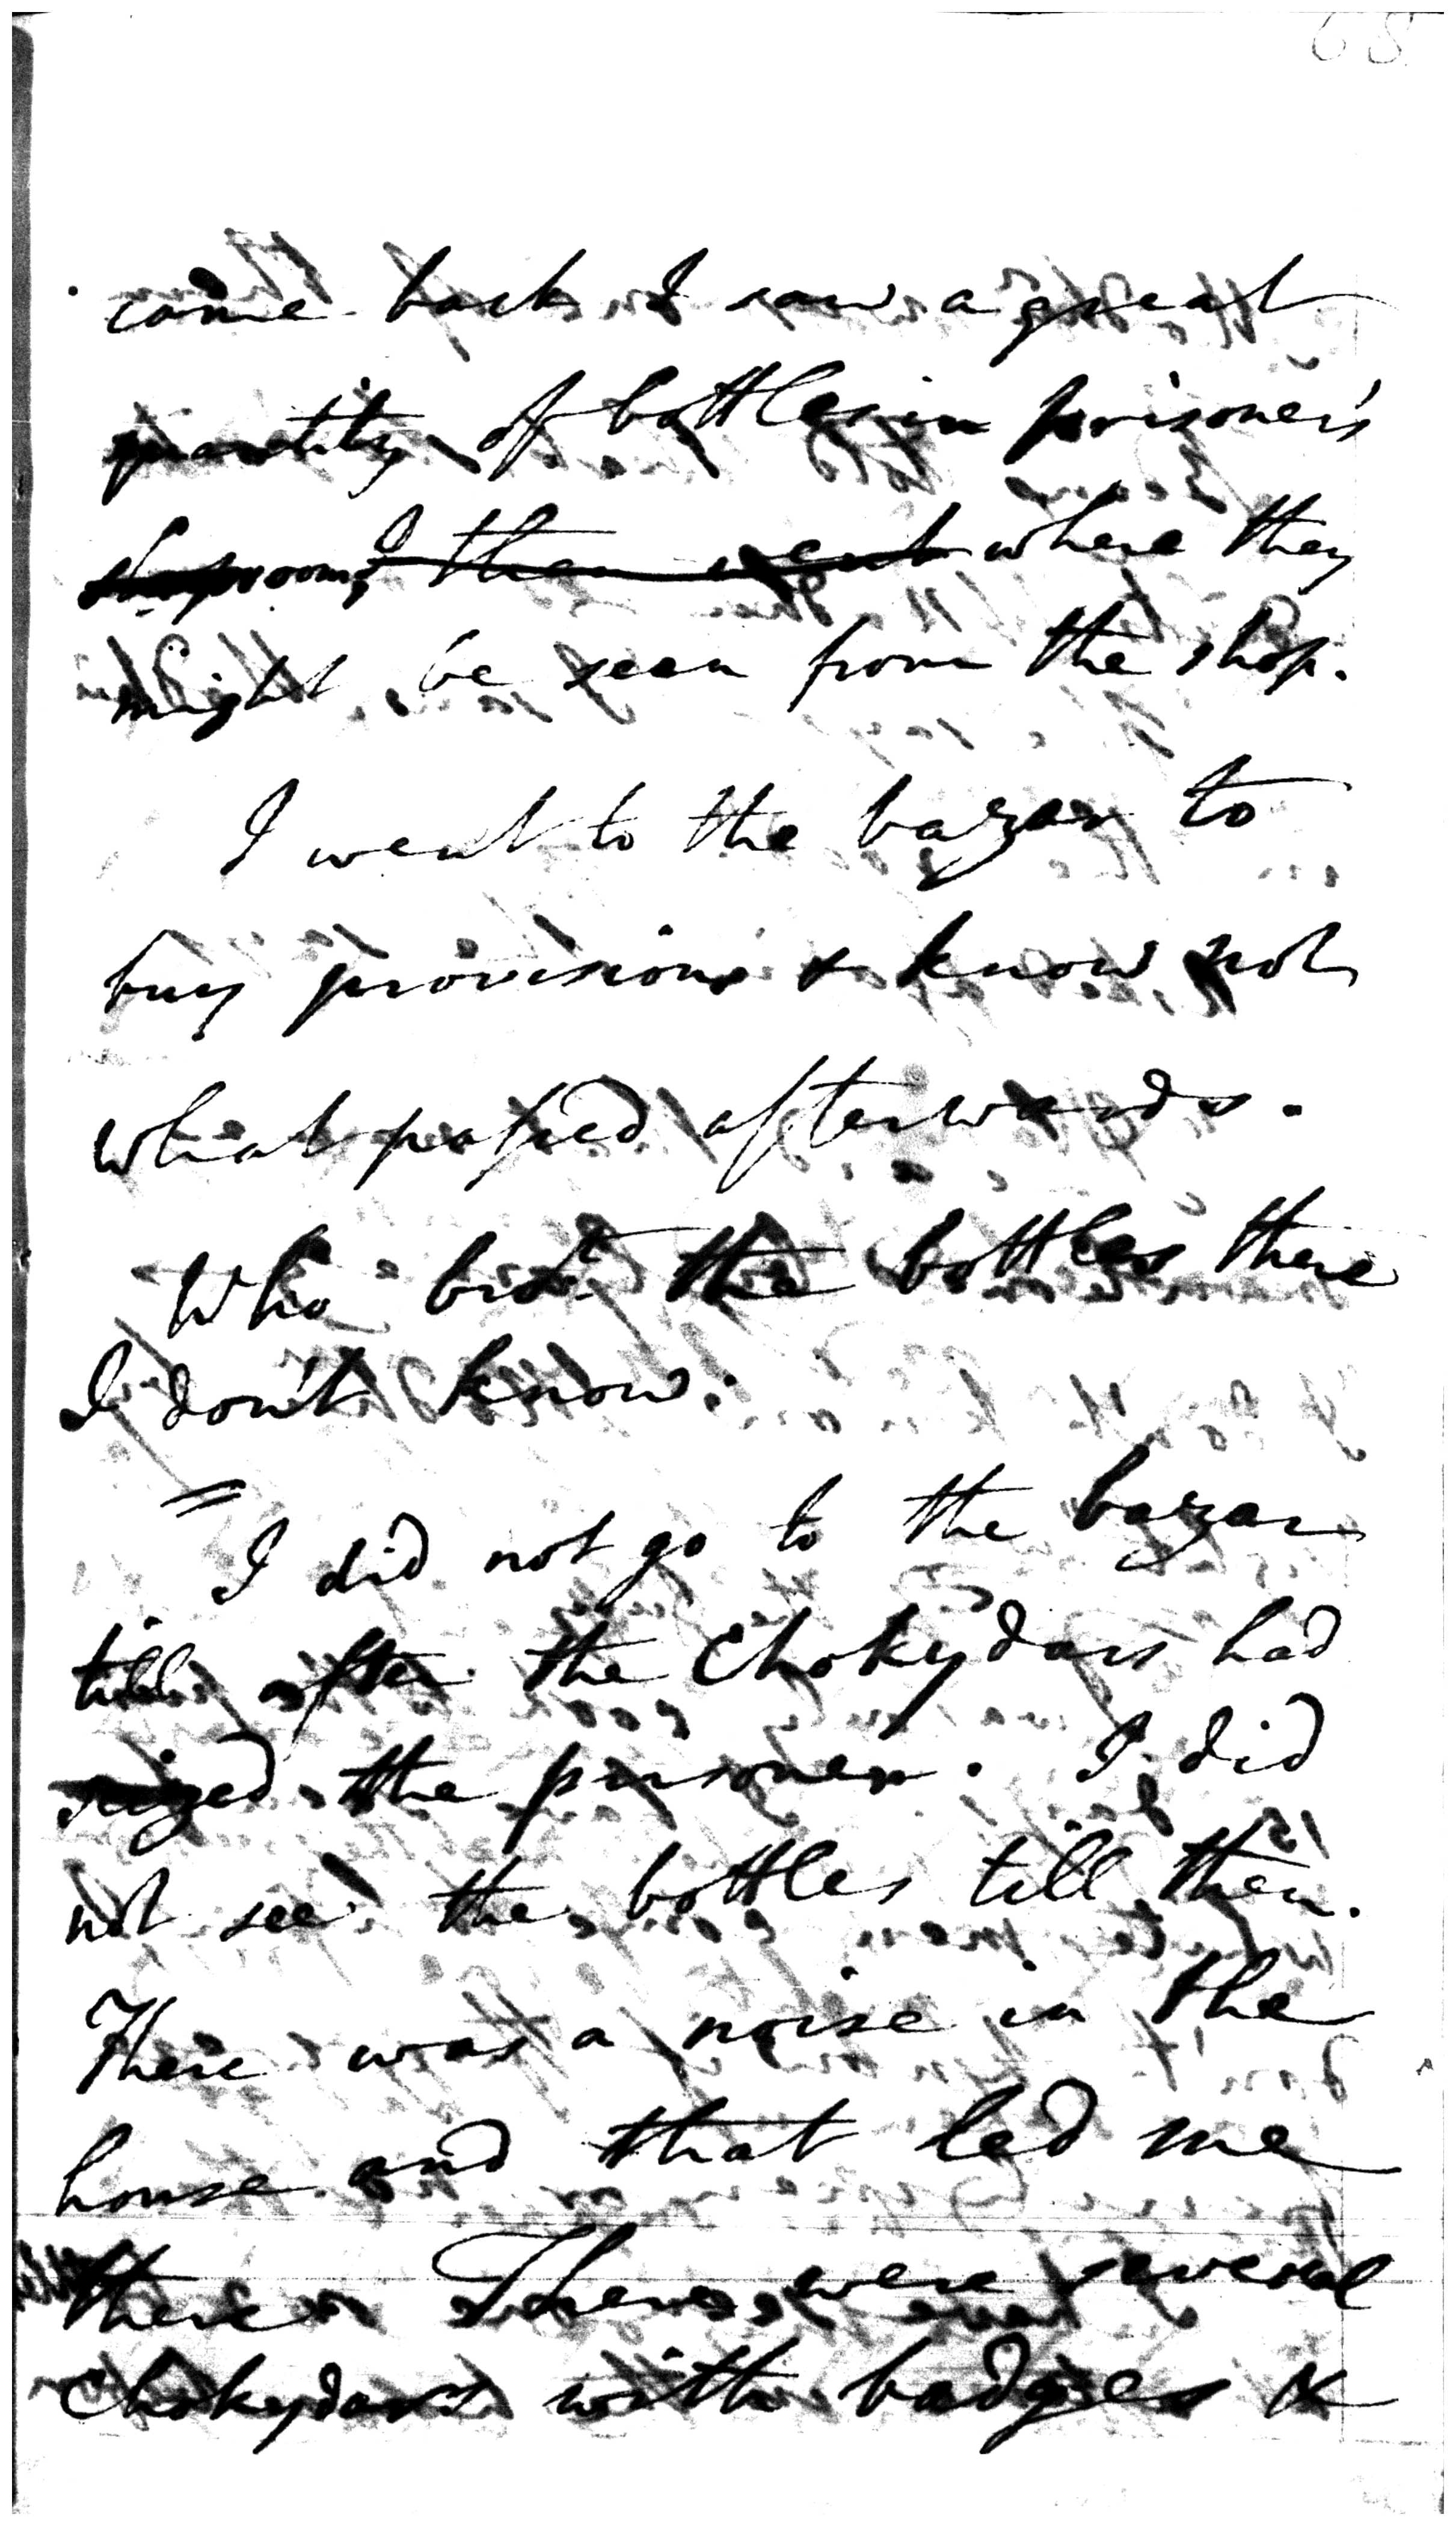 68
came back I saw a great
quantity of bottles in prisoner's
shop room, I then went where they
might be seen from the shop.
I went to the bazar to
buy provisions & know not
what passed afterwards.
Who brot the bottles there
I don't know.
= I did not go to the bazar
till after the Chokydars had
seized the prisoner. I did
not see the bottles till then.
There was a noise in the
house and that led me
there There were several
Chokydars with badges &